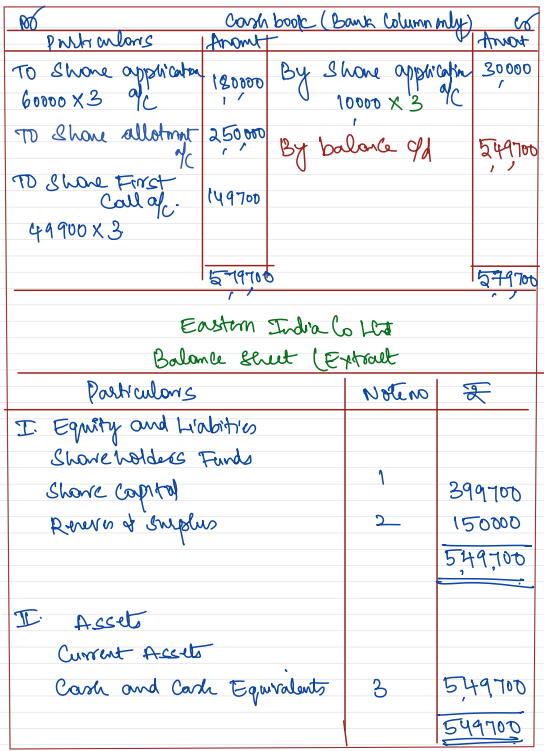 Dr Cash book (Bank Column only) Cr
Particulars Amount Amount
To Share application a/c 180000 By Share application a/c 30000
60000 X 3 10000 X 3
TO Share allotment a/c 250000 By balance c/d 549700
TO Share First
Call a/c. 149700
49900 X 3
579700 579700
Eastern India Co Ltd
Balance Sheet (Extract
Particulars Note no ₹
I. Equity and Liabities
Shareholders Funds
Share Capital 1 399700
Reserves & Surplus 2 150000
549,700
II. Assets
Current Assets
Cash and Cash Equivalents 3 549,700
549700